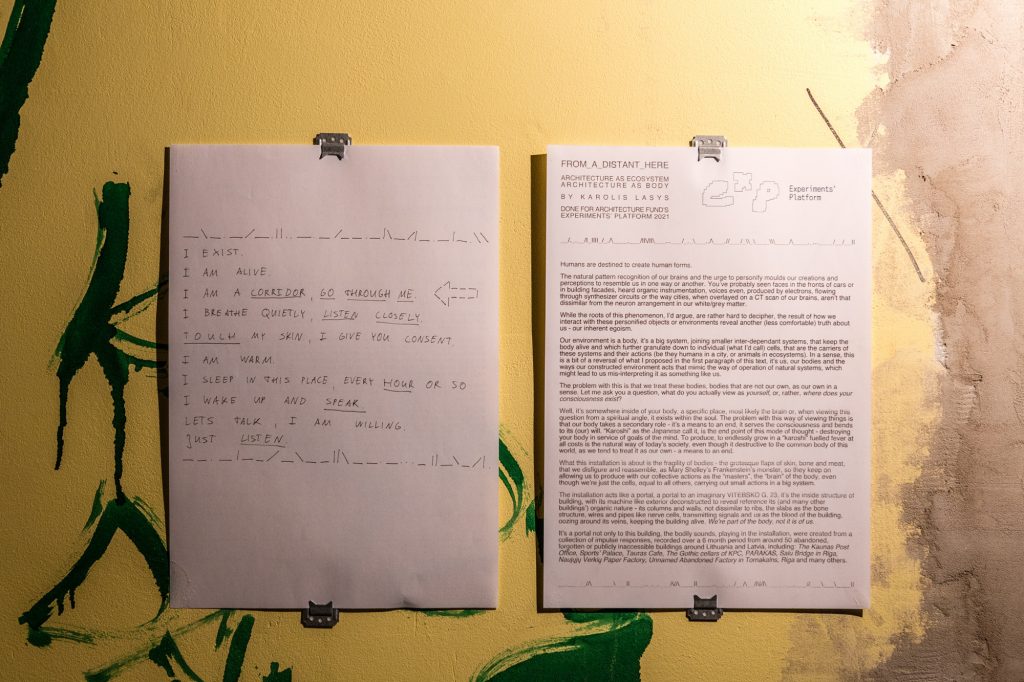 I EXIST.
I AM ALIVE.
I AM A CORRIDOR, GO THROUGH ME.
I BREATHE QUIETLY, LISTEN CLOSELY.
TOUCH MY SKIN, I GIVE YOU CONSENT.
I AM WARM.
I SLEEP IN THIS PLACE, EVERY HOUR OR SO
I WAKE UP AND SPEAK.
LETS TALK, I AM WILLING.
JUST LISTEN.
FROM_A_DISTANT_HERE
ARCHITECTURE AS ECOSYSTEM
ARCHITECTURE AS BODY
BY KAROLIS LASYS
DONE FOR ARCHITECTURE FUND'S
EXPERIMENTS' PLATFORM 2021
exp
Experiments'
Platform
Humans are destined to create human forms.
The natural pattern recognition of our brains and the urge to personify moulds our creations and
perceptions to resemble us in one way or another. You've probably seen faces in the fronts of cars or
in building facades, heard organic instrumentation, voices even, produced by electrons, flowing
through synthesizer circuits or the way cities, when overlayed on a CT scan of our brains, aren't that
dissimilar from the neuron arrangement in our white/grey matter.
While the roots of this phenomenon, I'd argue, are rather hard to decipher, the result of how we
interact with these personified objects or environments reveal another (less comfortable) truth about
us - our inherent egoism.
Our environment is a body, it's a big system, joining smaller inter-dependant systems, that keep the
body alive and which further granulate down to individual (what I'd call) cells, that are the carriers of
these systems and their actions (be they humans in a city, or animals in ecosystems). In a sense, this
is a bit of a reversal of what I proposed in the first paragraph of this text, it's us, our bodies and the
ways our constructed environment acts that mimic the way of operation of natural systems, which
might lead to us mis-interpreting it as something like us.
The problem with this is that we treat these bodies, bodies that are not our own, as our own in a
sense. Let me ask you a question, what do you actually view as yourself, or, rather, where does your
consciousness exist?
Well, it's somewhere inside of your body, a specific place, most likely the brain or, when viewing this
question from a spiritual angle, it exists within the soul. The problem with this way of viewing things is
that our body takes a secondary role - it's a means to an end, it serves the consciousness and bends
to its (our) will. "Karoshi" as the Japanese call it, is the end point of this mode of thought - destroying
your body in service of goals of the mind. To produce, to endlessly grow in a "karoshi" fuelled fever at
all costs is the natural way of today's society, even though it destructive to the common body of this
world, as we tend to treat it as our own - a means to an end.
What this installation is about is the fragility of bodies - the grotesque flaps of skin, bone and meat,
that we disfigure and reassemble, as Mary Shelley's Frankenstein's monster, so they keep on
allowing us to produce with our collective actions as the "masters", the "brain" of the body, even
though we're just the cells, equal to all others, carrying out small actions in a big system.
The installation acts like a portal, a portal to an imaginary VITEBSKO G. 23, it's the inside structure of
building, with its machine like exterior deconstructed to reveal reference its (and many other
buildings') organic nature - its columns and walls, not dissimilar to ribs, the slabs as the bone
structure, wires and pipes like nerve cells, transmitting signals and us as the blood of the building,
oozing around its veins, keeping the building alive. We're part of the body, not it is of us.
It's a portal not only to this building, the bodily sounds, playing in the installation, were created from a
collection of impulse responses, recorded over a 6 month period from around 50 abandoned,
forgotten or publicly inaccessible buildings around Lithuania and Latvia, including: The Kaunas Post
Office, Sports' Palace, Tauras Cafe, The Gothic cellars of KPC, PARAKAS, Salu Bridge in Riga,
Naujųjų Verkių Paper Factory, Unnamed Abandoned Factory in Tornakalns, Riga and many others.